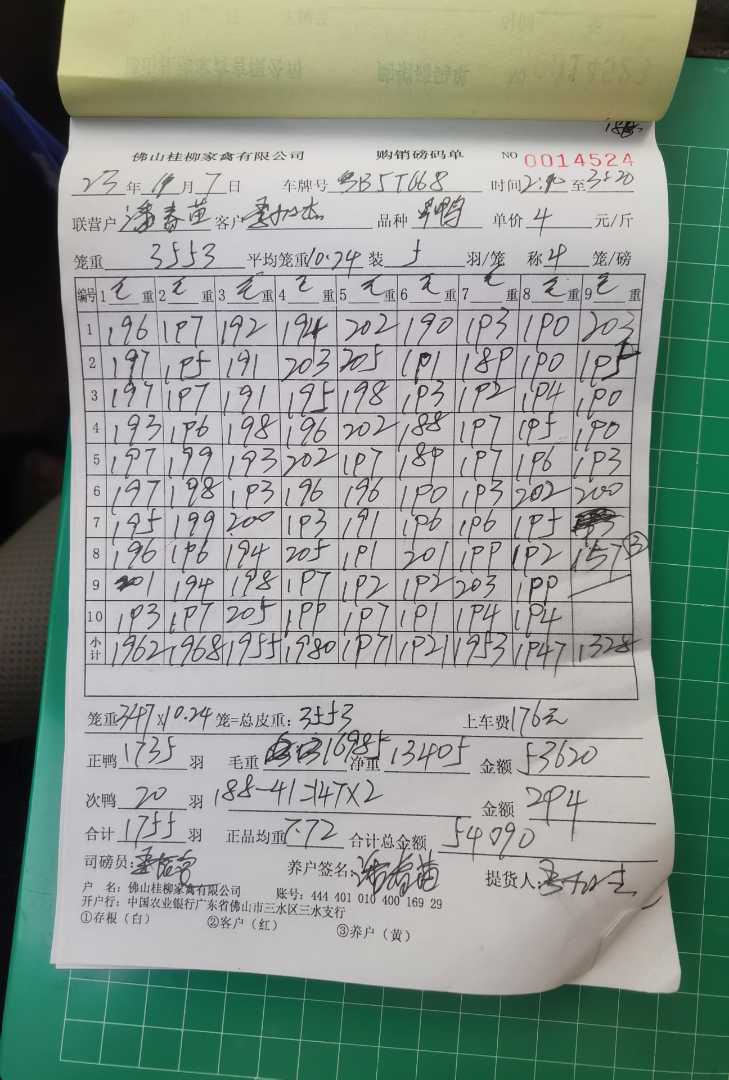 佛山桂柳家禽有限公司 购销磅码单 NO 0014524
23年 月7日 车牌号 B5T668 时间2: 至3:20
联营户 潘春苗 客户 品种 鸭 单价 4 元/斤
笼重 3553 平均笼重10.24 装 5 羽/笼 称 4 笼/磅
编号 1毛重 2毛重 3毛重 4毛重 5毛重 6毛重 7毛重 8毛重 9毛重
1 196 197 192 194 202 190 193 190 203
2 197 195 191 203 205 191 189 190 195
3 197 197 191 195 198 193 192 194 190
4 193 196 198 196 202 188 197 195 190
5 197 199 193 202 197 189 197 196 193
6 197 198 193 196 196 190 193 202 200
7 195 199 200 193 191 196 196 195
8 196 196 194 205 191 201 199 192 157 ③
9 201 194 198 197 192 192 203 199
10 193 197 205 199 197 191 194 194
小计 1962 1968 1955 1980 1971 1921 1953 1947 1328
笼重347×10.24 笼=总皮重:3553 上车费176元
正鸭 1735 羽 毛重 16985 净重 13405 金额 53620
次鸭 20 羽 188-41=147×2 金额 294
合计 1755 羽 正品均重7.72 合计总金额 54090
司磅员: 养户签名:潘春苗 提货人:
户 名:佛山桂柳家禽有限公司 账号:444 401 010 400 169 29
开户行:中国农业银行广东省佛山市三水区三水支行
①存根(白) ②客户(红) ③养户(黄)